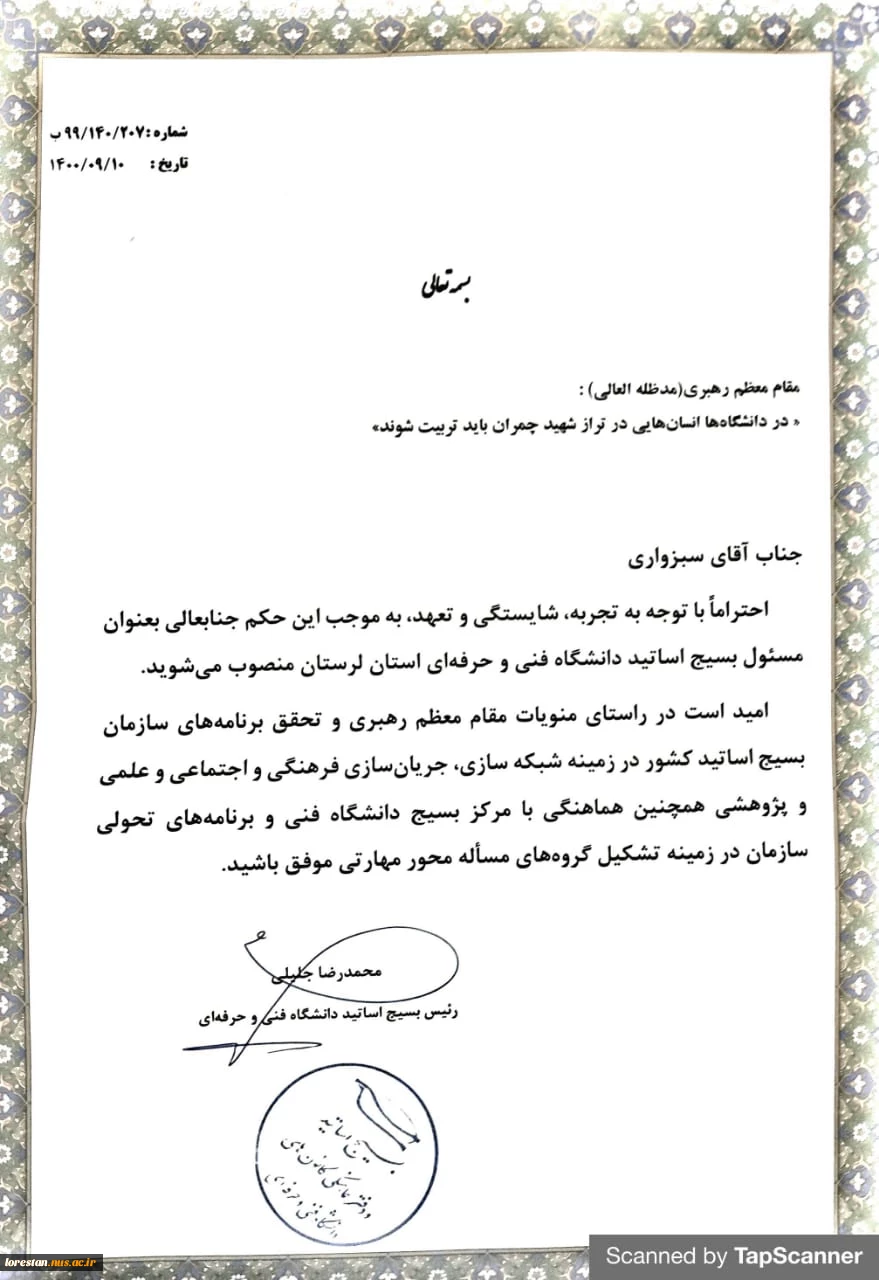 شماره: ۹۹/۱۴۰/۲۰۷ ب
تاریخ: ۱۴۰۰/۰۹/۱۰
بسمه تعالی
مقام معظم رهبری(مدظله العالی) :
« در دانشگاه‌ها انسان‌هایی در تراز شهید چمران باید تربیت شوند»
جناب آقای سبزواری
احتراماً با توجه به تجربه، شایستگی و تعهد، به موجب این حکم جنابعالی بعنوان
مسئول بسیج اساتید دانشگاه فنی و حرفه‌ای استان لرستان منصوب می‌شوید.
امید است در راستای منویات مقام معظم رهبری و تحقق برنامه‌های سازمان
بسیج اساتید کشور در زمینه شبکه سازی، جریان‌سازی فرهنگی و اجتماعی و علمی
و پژوهشی همچنین هماهنگی با مرکز بسیج دانشگاه فنی و برنامه‌های تحولی
سازمان در زمینه تشکیل گروه‌های مسأله محور مهارتی موفق باشید.
محمدرضا جلیلی
رئیس بسیج اساتید دانشگاه فنی و حرفه‌ای
بسیج اساتید
دانشگاه فنی و حرفه ای
lorestan.nus.ac.ir
Scanned by TapScanner